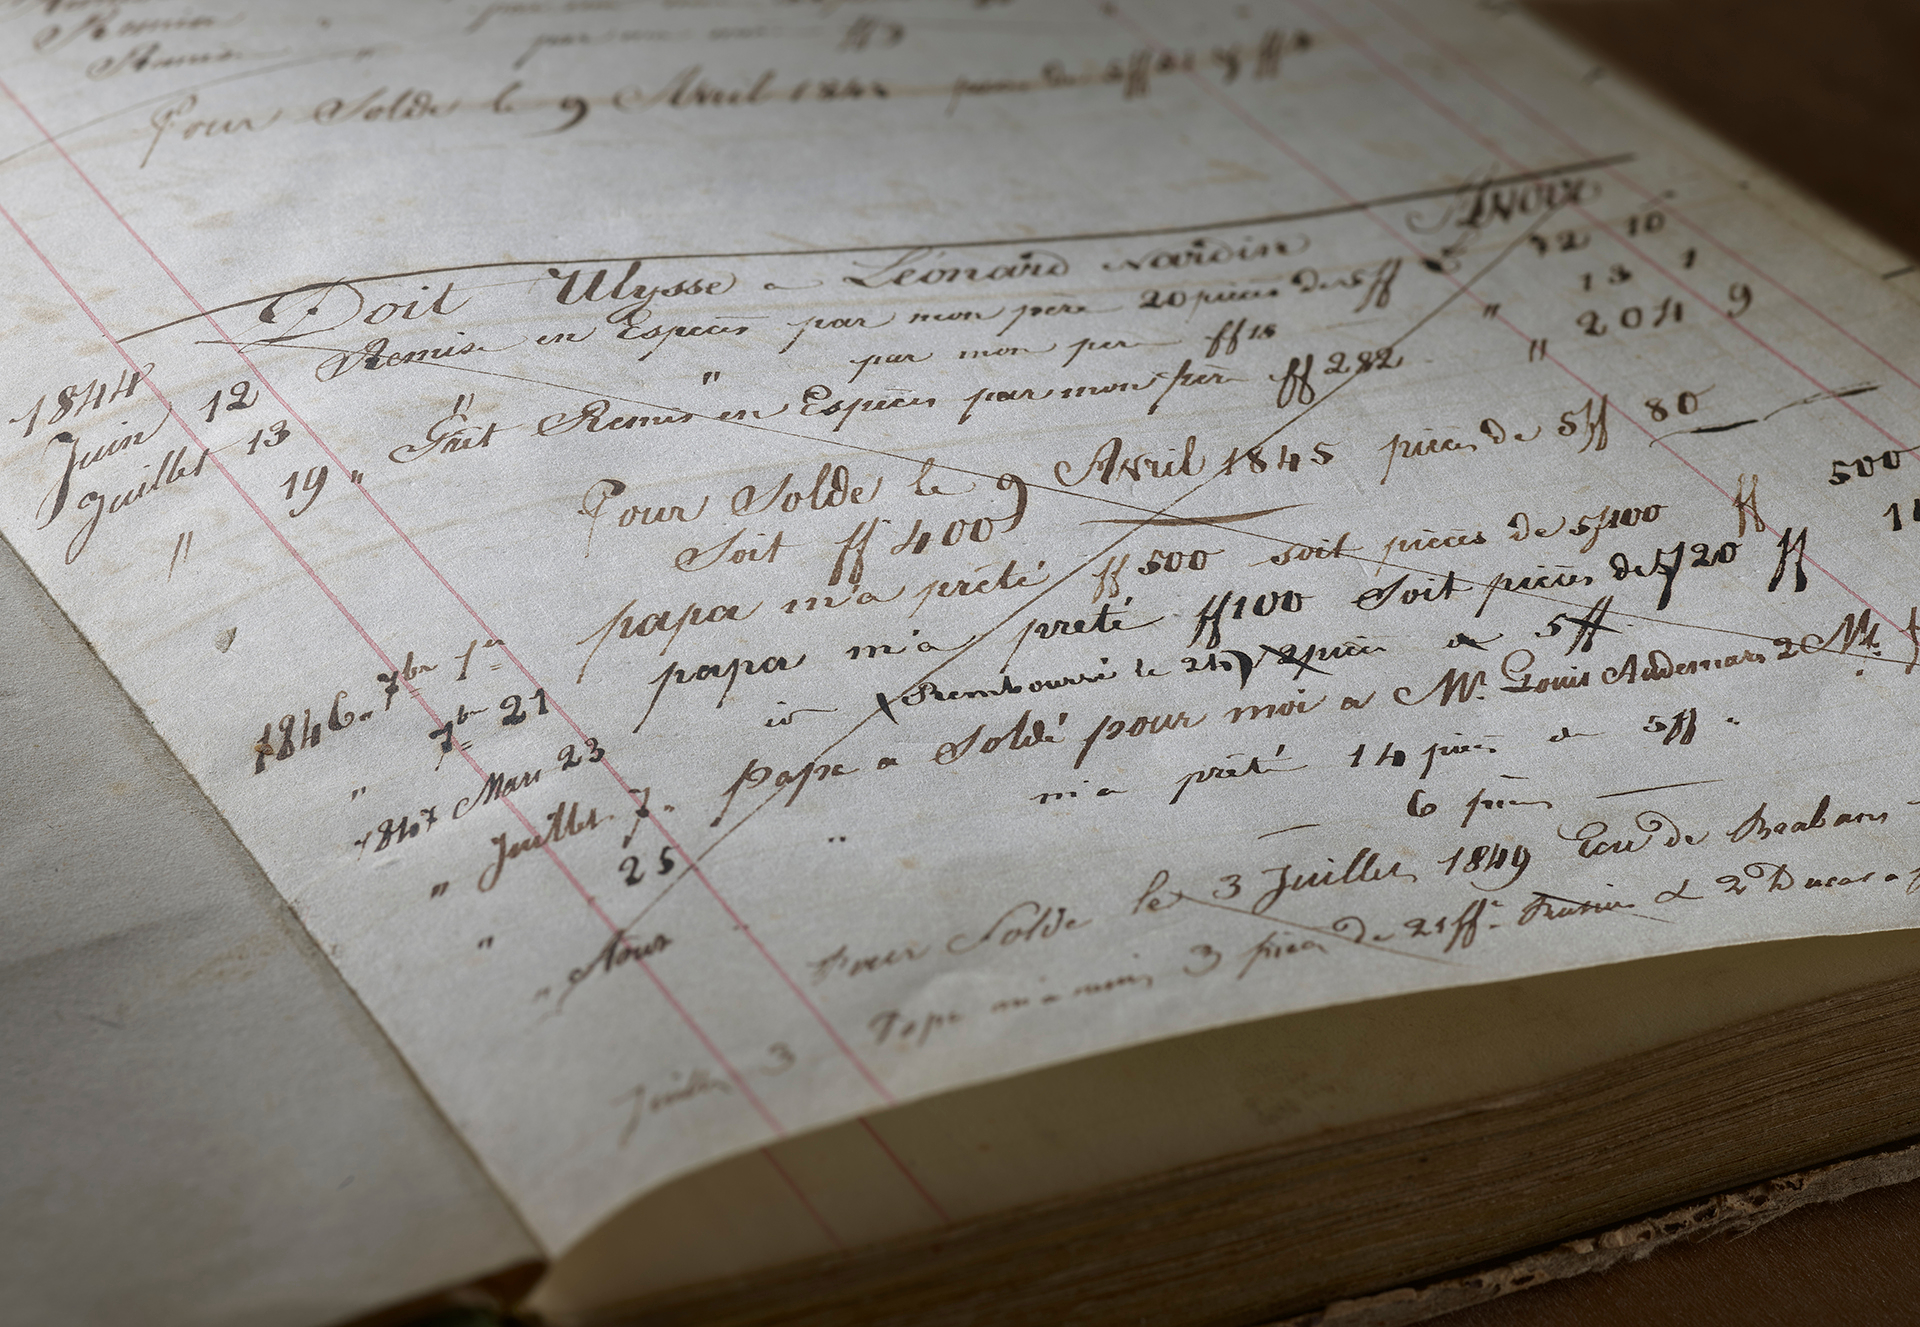 Remise
Remise " par mon ff
Pour Solde le 9 Avril pièces de 5ff
Doit Ulysse a Léonard Nardin Avoir
1844
Juin 12 Remise en Espèces par mon père 20 pièces de 5ff L 72 10
Juillet 13 " " par mon père ff18 " 13 1
" 19 " Fait Remis en Espèces par mon père ff 282 " 204 9
Pour Solde le 9 Avril 1845 pièces de 5ff 80
Soit ff 400
1846. 7bre 1er papa m'a prêté ff500 soit pièces de 5/100 ff 500
" 7bre 21 papa m'a prêté ff100 Soit pièces de 5/20 ff
1847 Mars 23 (Rembourré le 24) 2 pièces de 5ff
" Juillet 7 " Papa a Soldé pour moi a Mr. Louis Audemars 2 M.
" 25 " m'a prêté 14 pièces de 5ff "
" Aout " 6 pièces
Pour Solde le 3 Juillet 1849 Ecu de Brabant
Juillet 3 Papa m'a remis 3 pièces de 21ff. & 2 Ducats a